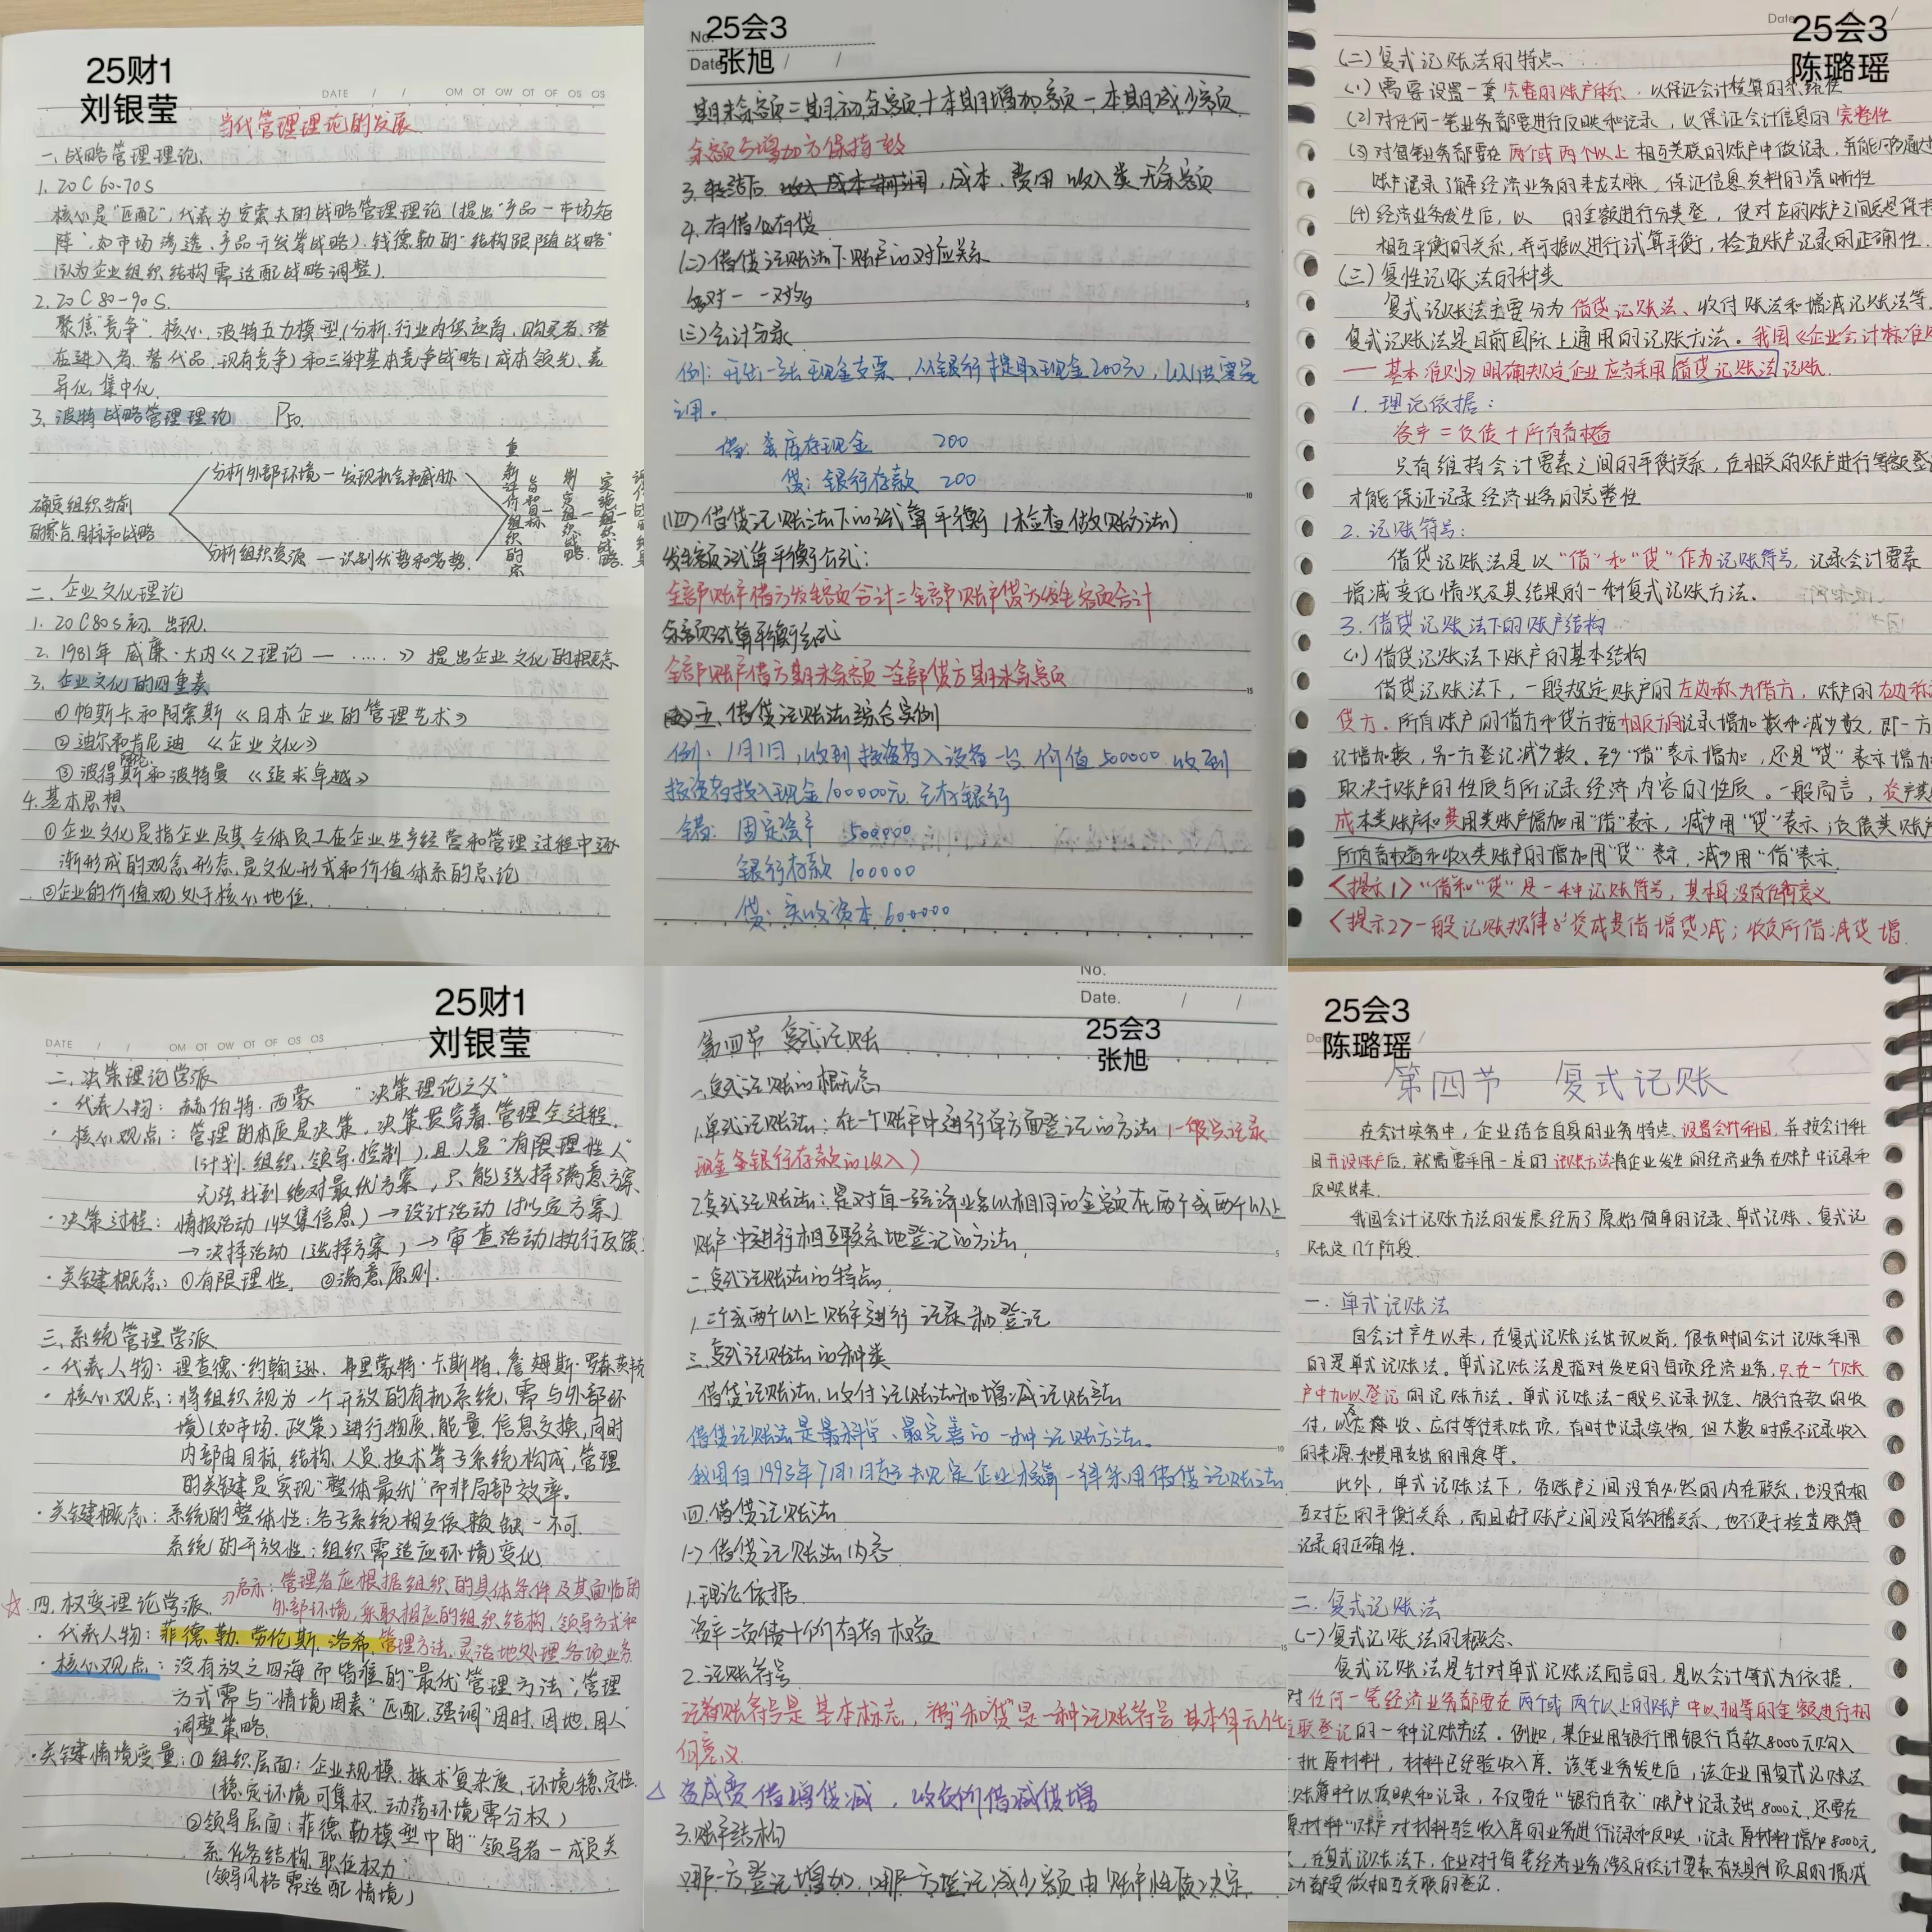 25财1
刘银莹
DATE / / OM OT OW OT OF OS OS
当代管理理论的发展
一、战略管理理论.
1. 20C 60-70s
核心是"匹配",代表为安索夫的战略管理理论(提出"产品-市场矩
阵",如市场渗透、产品开发等战略).钱德勒的"结构跟随战略"
(认为企业组织结构需适配战略调整).
2. 20C 80-90s.
聚焦"竞争".核心.波特五力模型(分析.行业内供应商、购买者.潜
在进入者、替代品、现有竞争)和三种基本竞争战略(成本领先、差
异化,集中化.
3. 波特战略管理理论 P50.
确定组织当前
的宗旨.目标和战略
分析外部环境一发现机会和威胁
分析组织资源 一识别优势和劣势.
重新评价组织的宗
二、企业文化理论
1. 20C80s初.出现.
2. 1981年 威廉·大内《Z理论 — ..... 》提出企业文化的概念
3. 企业文化的四重奏
①帕斯卡和阿索斯《日本企业的管理艺术》
②迪尔和肯尼迪 《企业文化》
③彼得斯和波特曼 《追求卓越》
4.基本思想
①企业文化是指企业及其全体员工在企业生产经营和管理过程中逐
渐形成的观念形态,是文化形式和价值体系的总论
②企业的价值观处于核心地位.
25会3
张旭
No.
Date / /
期末余额=期初余额+本期增加额-本期减少额
余额与增加方保持一致
3. 转结后 收入 成本 利润,成本、费用 收入类 无余额
4. 有借必有贷
(二)借贷记账法下账户的对应关系
(三)会计分录
例:开出一张现金支票,从银行提取现金200元,以供零星
之用。
借:库存现金 200
贷:银行存款 200
(四)借贷记账法下的试算平衡 (检查做账方法)
发生额试算平衡公式:
全部账户借方发生额合计=全部账户贷方发生额合计
余额试算平衡公式
全部账户借方期末余额=全部贷方期末余额
五、借贷记账法综合实例
例:1月1日,收到投资者入设备一台 价值500000 收到
投资者投入现金100000元 已存银行
借:固定资产 500000
银行存款 100000
贷:实收资本 600000
Date / /
25会3
陈璐瑶
(二)复式记账法的特点
(1)需要设置一套完整的账户体系,以保证会计核算的系统性
(2)对任何一笔业务都要进行反映和记录,以保证会计信息的完整性
(3)对每笔业务都要在两个或两个以上相互关联的账户中做记录,并能够通过
账户记录了解经济业务的来龙去脉,保证信息资料的清晰性
(4)经济业务发生后,以 的金额进行分类登,使对应的账户之间总是保持
相互平衡的关系,并可据以进行试算平衡,检查账户记录的正确性.
(三)复性记账法的种类
复式记账法主要分为借贷记账法、收付账法和增减记账法等
复式记账法是目前国际上通用的记账方法。我国《企业会计标准
——基本准则》明确规定企业应当采用借贷记账法记账.
1. 理论依据:
资产=负债+所有者权益
只有维持会计要素之间的平衡关系,在相关的账户进行等额登
才能保证记录经济业务的完整性
2. 记账符号:
借贷记账法是以"借"和"贷"作为记账符号,记录会计要素
增减变化情况及其结果的一种复式记账方法.
3. 借贷记账法下的账户结构
(1)借贷记账法下账户的基本结构
借贷记账法下,一般规定账户的左边称为借方,账户的右边称
贷方.所有账户的借方和贷方按相反方向记录增加数和减少数,即一方
记增加数,另一方登记减少数.至于"借"表示增加,还是"贷"表示增加
取决于账户的性质与所记录经济内容的性质。一般而言,资产类
成本类账户和费用类账户增加用"借"表示,减少用"贷"表示;负债类账户
所有者权益和收入类账户的增加用"贷"表示,减少用"借"表示.
<提示1>"借"和"贷"是一种记账符号,其本身没有任何意义
<提示2>一般记账规律为:资成费借增贷减;收负所借减贷增.
25财1
刘银莹
DATE / / OM OT OW OT OF OS OS
二、决策理论学派
·代表人物:赫伯特·西蒙 "决策理论之父"
·核心观点:管理的本质是决策,决策贯穿着管理全过程,
(计划、组织、领导、控制),且人是"有限理性人"
无法找到绝对最优方案,只能选择满意方案.
·决策过程:情报活动(收集信息)→设计活动(拟定方案)
→决择活动(选择方案)→审查活动(执行反馈
·关键概念:①有限理性. ②满意原则.
三、系统管理学派
·代表人物:理查德·约翰逊、弗里蒙特·卡斯特,詹姆斯·罗森茨韦
·核心观点:将组织视为一个开放的有机系统,需与外部环
境(如市场、政策)进行物质,能量,信息交换,同时
内部由目标,结构,人员,技术等子系统构成,管理
的关键是实现"整体最优"而非局部效率。
·关键概念:系统的整体性:各子系统相互依赖缺一不可.
系统的开放性:组织需适应环境变化
☆四.权变理论学派.→启示:管理者应根据组织的具体条件及其面临的
外部环境,采取相应的组织结构,领导方式和
·代表人物:菲德勒,劳伦斯,洛希.管理方法,灵活地处理各项业务
·核心观点:没有放之四海而皆准的"最优管理方法";管理
方式需与"情境因素"匹配,强调"因时,因地,因人"
调整策略.
·关键情境变量:①组织层面:企业规模、技术复杂度,环境稳定性.
(稳定环境可集权,动荡环境需分权)
②领导层面:菲德勒模型中的"领导者-成员关
系.任务结构.职位权力
(领导风格需适配情境)
No.
Date. / /
25会3
张旭
第四节 复式记账
一.复式记账的概念
1.单式记账法:在一个账户中进行单方面登记的方法(一般只记录
现金条银行存款的收入)
2.复式记账法:是对每一经济业务以相同的金额在两个或两个以上
账户中进行相互联系地登记的方法,
二.复式记账法的特点
1.二个或两个以上账户进行记录和登记
三.复式记账法的种类
借贷记账法,收付记账法和增减记账法
借贷记账法是最科学、最完善的一种记账方法。
我国自1993年7月1日起规定企业核算一律采用借贷记账法
四.借贷记账法
(一)借贷记账法内容
1.理论依据
资产=负债+所有者权益
2.记账符号
记账符号是基本标志,"借"和"贷"是一种记账符号 其本身无任
何意义
△资成费借增贷减,收负所借减贷增
3.账户结构
哪一方登记增加,哪一方登记减少额由账户性质决定.
25会3
陈璐瑶
第四节 复式记账
在会计实务中,企业结合自身的业务特点、设置会计科目,并按会计科
目开设账户后,就需要采用一定的记账方法将企业发生的经济业务在账户中记录和
反映出来.
我国会计记账方法的发展经历了原始简单的记录、单式记账、复式记
账这几个阶段.
一.单式记账法
自会计产生以来,在复式记账法出现以前,很长时间会计记账采用
的是单式记账法。单式记账法是指对发生的每项经济业务,只在一个账
户中加以登记的记账方法.单式记账法一般只记录现金、银行存款的收
付,以及应收、应付等往来账项,有时也记录实物,但大数时候不记录收入
的来源和费用支出的用途等。
此外,单式记账法下,各账户之间没有必然的内在联系,也没有相
互对应的平衡关系,而且由于账户之间没有钩稽关系,也不便于检查账簿
记录的正确性.
二.复式记账法
(一)复式记账法的概念、
复式记账法是针对单式记账法而言的,是以会计等式为依据,
对任何一笔经济业务都要在两个或两个以上的账户中以相等的金额进行相
互联登记的一种记账方法.例如,某企业用银行用银行存款8000元购入
一批原材料,材料已经验收入库.该笔业务发生后,该企业用复式记账法
账簿中予以反映和记录,不仅要在"银行存款"账户中记录支出8000元,还要在
原材料"账户对材料验收入库的业务进行记录和反映,记录原材料增加8000元,
,在复式记账法下,企业对于每笔经济业务涉及的会计要素有关具体项目的增减
动都要做相互关联的登记.